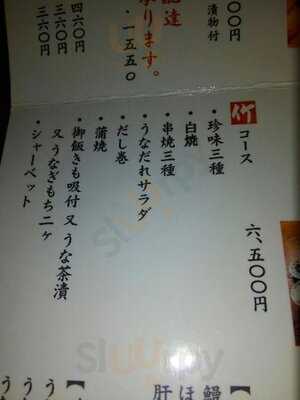 〇〇円
漬物付
配達
ります。
・一五五〇
四六〇円
三六〇円
三六〇円
竹コース
六、五〇〇円
・珍味三種
・白焼
・串焼三種
・うなだれサラダ
・だし巻
・蒲焼
・御飯きも吸付 又 うな茶漬
又 うなぎもち二ヶ
・シャーベット
【鰻
ほ
肝
【
う
う
う
sluurpy
sluurpy